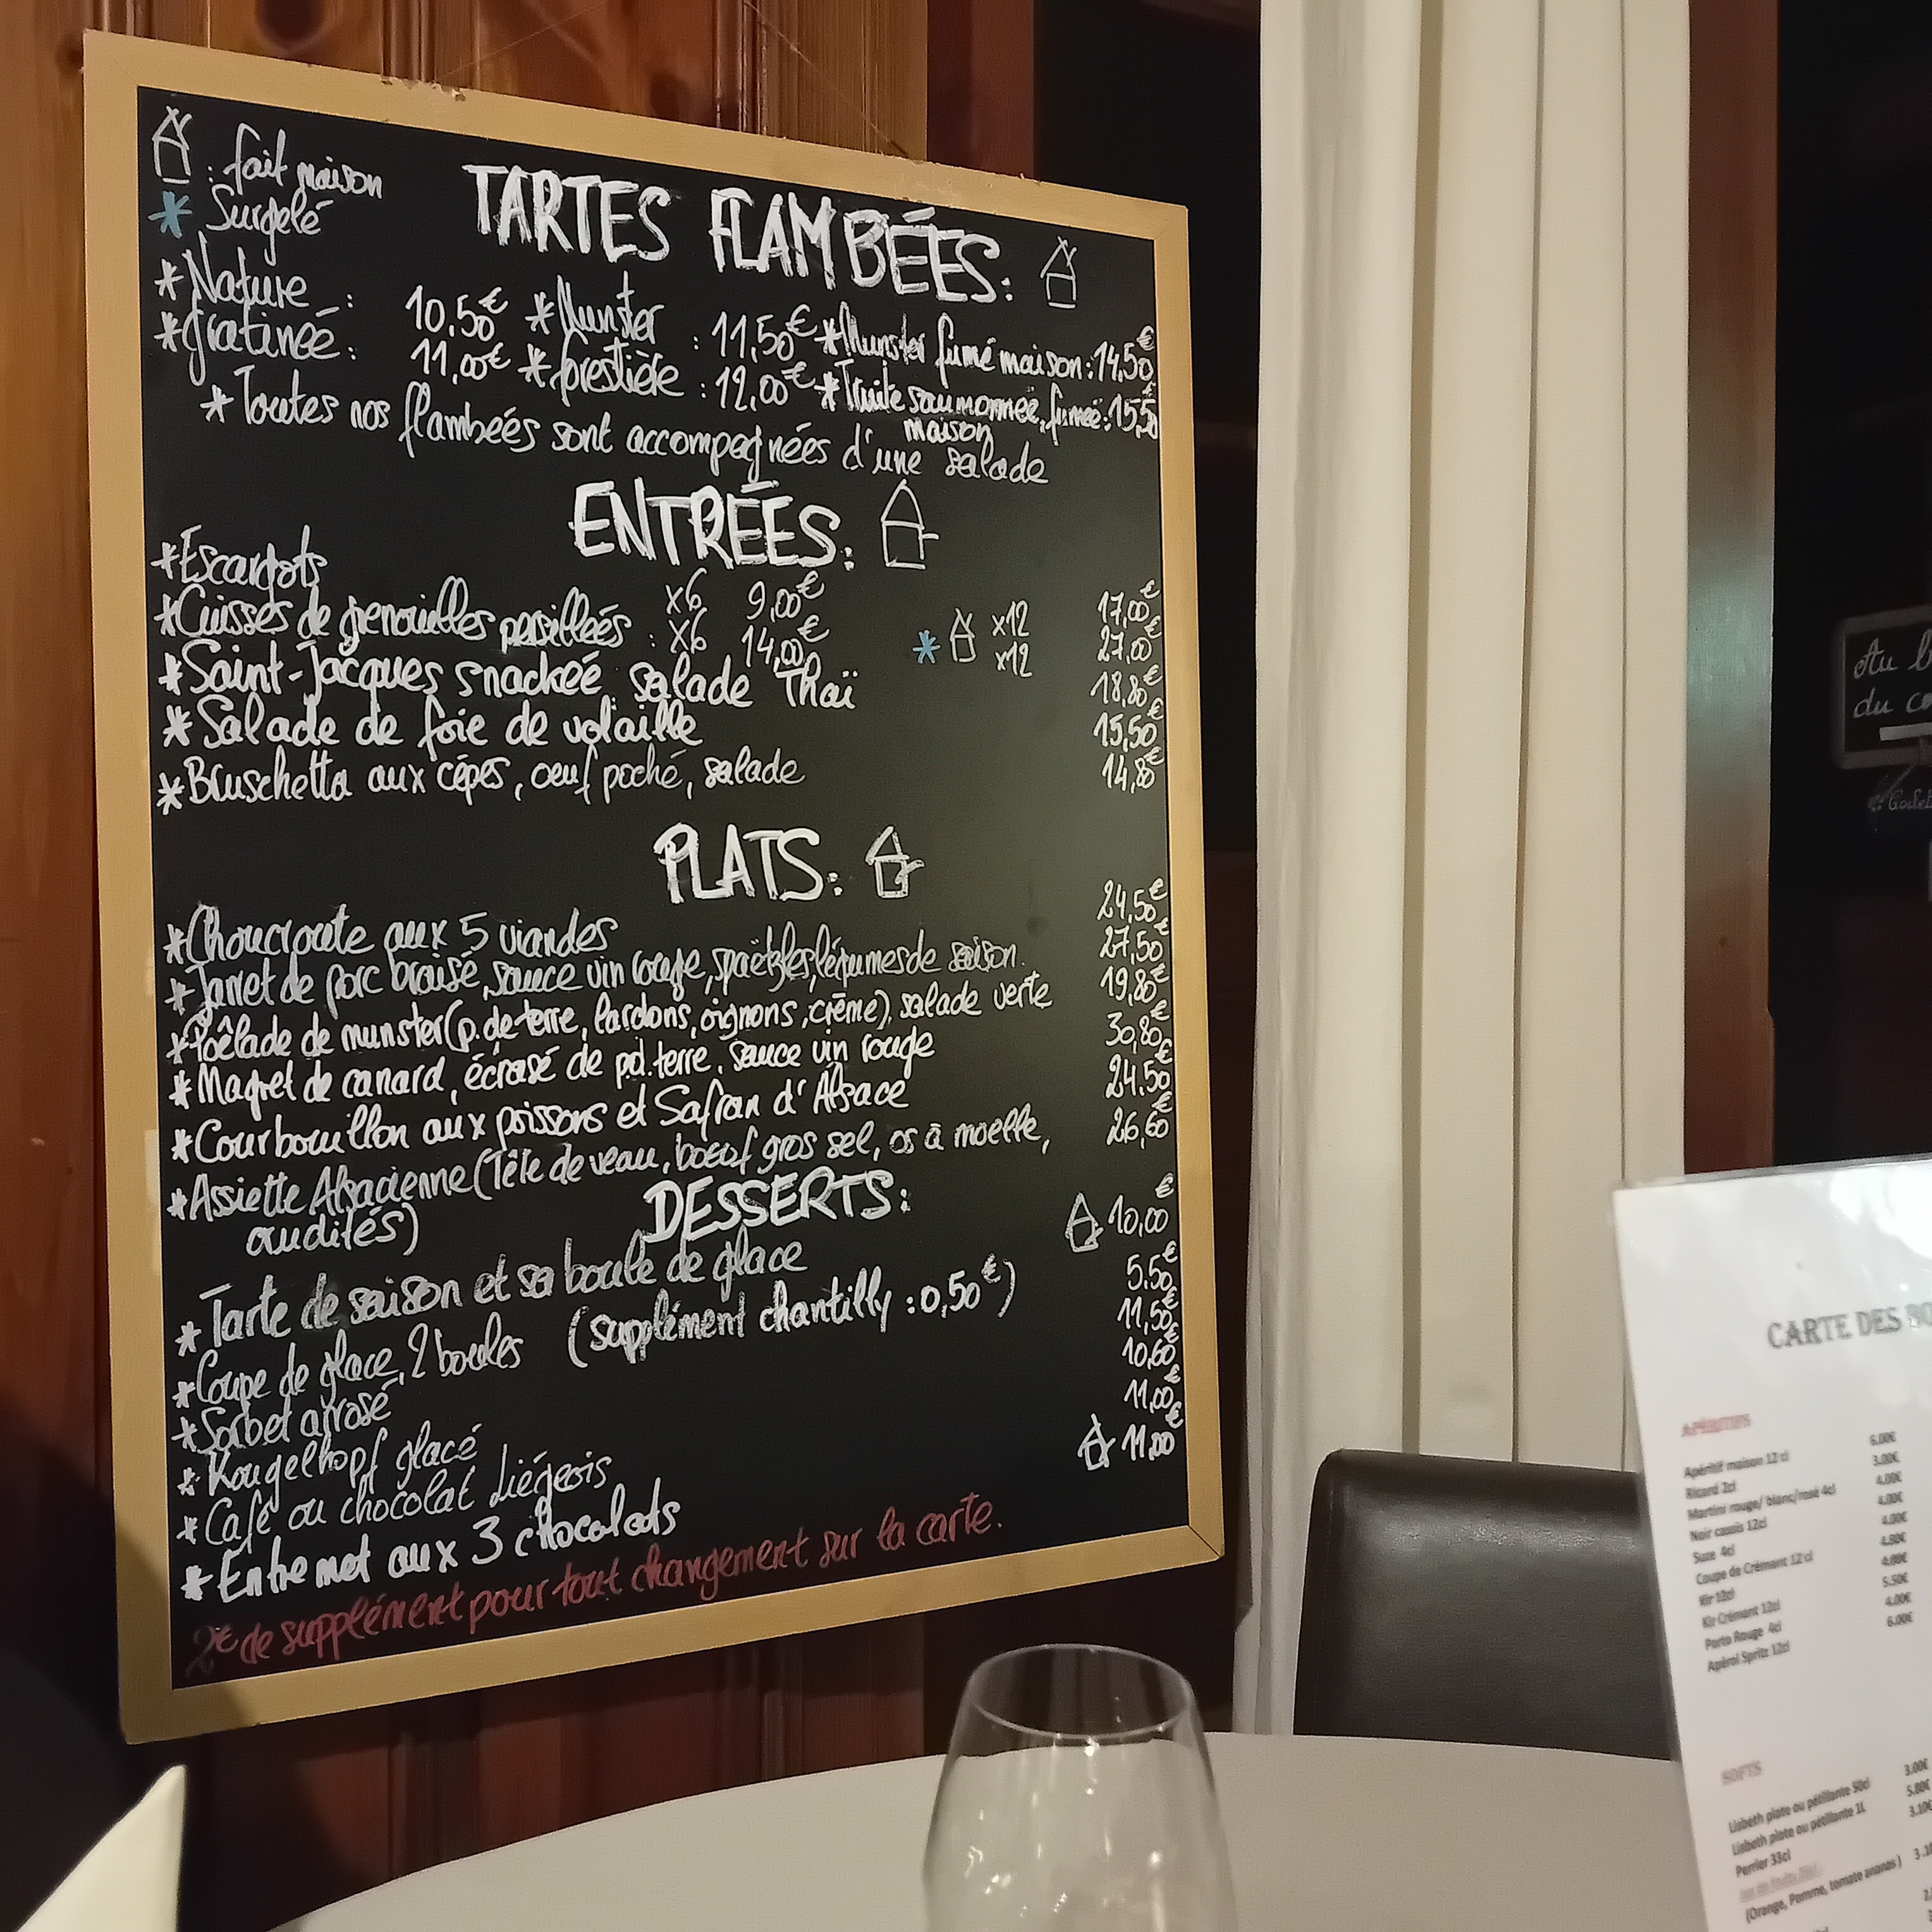 : fait maison
* Surgelé
TARTES FLAMBÉES:
*Nature : 10,50€ *Munster : 11,50€ *Munster fumé maison: 14,50€
*gratinée: 11,00€ *forestière : 12,00€ *Truite saumonnée, fumée: 15,5
maison
*Toutes nos flambées sont accompagnées d'une salade
ENTRÉES:
*Escargots x6 9,00€ x12 17,00€
*Cuisses de grenouilles persillées : x6 14,00€ * x12 27,00€
*Saint-Jacques snackée, salade Thaï 18,80€
*Salade de foie de volaille 15,50€
*Bruschetta aux cèpes, oeuf poché, salade 14,80€
PLATS:
*Choucroute aux 5 viandes 24,50€
*Jarret de porc braisé, sauce vin rouge, spaëtzles, légumes de saison. 27,50€
*Poêlade de munster (p.de terre, lardons, oignons, crème), salade verte 19,80€
*Magret de canard, écrasé de pd.terre, sauce vin rouge 30,80€
*Courbouillon aux poissons et Safran d'Alsace 24.50€
*Assiette Alsacienne (Tête de veau, boeuf gros sel, os à moelle, 26,60€
crudités)
DESSERTS:
*Tarte de saison et sa boule de glace 10,00€
*Coupe de glace, 2 boules (supplément chantilly : 0,50€) 5.50€
*Sorbet arrosé 11,50€
*Kougelhopf glacé 10,60€
*Café ou chocolat Liégeois 11,00€
*Entremet aux 3 chocolats 11,00€
2€ de supplément pour tout changement sur la carte.
Au
du
CARTE DES
APÉRITIFS
Apéritif maison 12 cl 6.00€
Ricard 2cl 3.00€
Martini rouge/ blanc/rosé 4cl 4.00€
Noir cassis 12cl 4.00€
Suze 4cl 4.00€
Coupe de Crémant 12 cl 4.80€
Kir 12cl 4.00€
Kir Crémant 12cl 5.50€
Porto Rouge 4cl 4.00€
Apérol Spritz 12cl 6.00€
SOFTS
Lisbeth plate ou pétillante 50cl 3.00€
Lisbeth plate ou pétillante 1L 5.80€
Perrier 33cl 3.10€
(Orange, Pomme, tomate ananas)